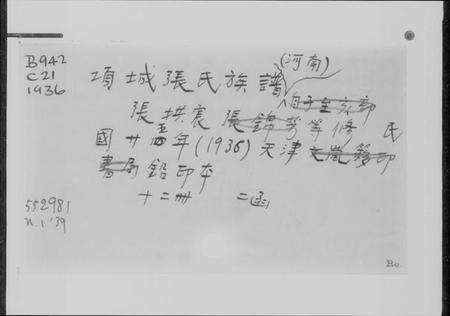 B942
C21
1936
項城張氏族譜 (河南)
自子至亥部
張拱宸 張錦芳等修 民
國廿五年(1936)天津文嵐簃印
書局鉛印本
十二冊 二函
552981
n.1 '39
Bo.